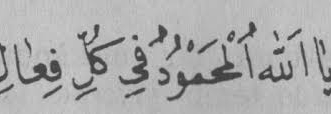 يَا اَللّٰه اَلْمَحْمُوْدُ فِي كُلِّ فِعَالِ